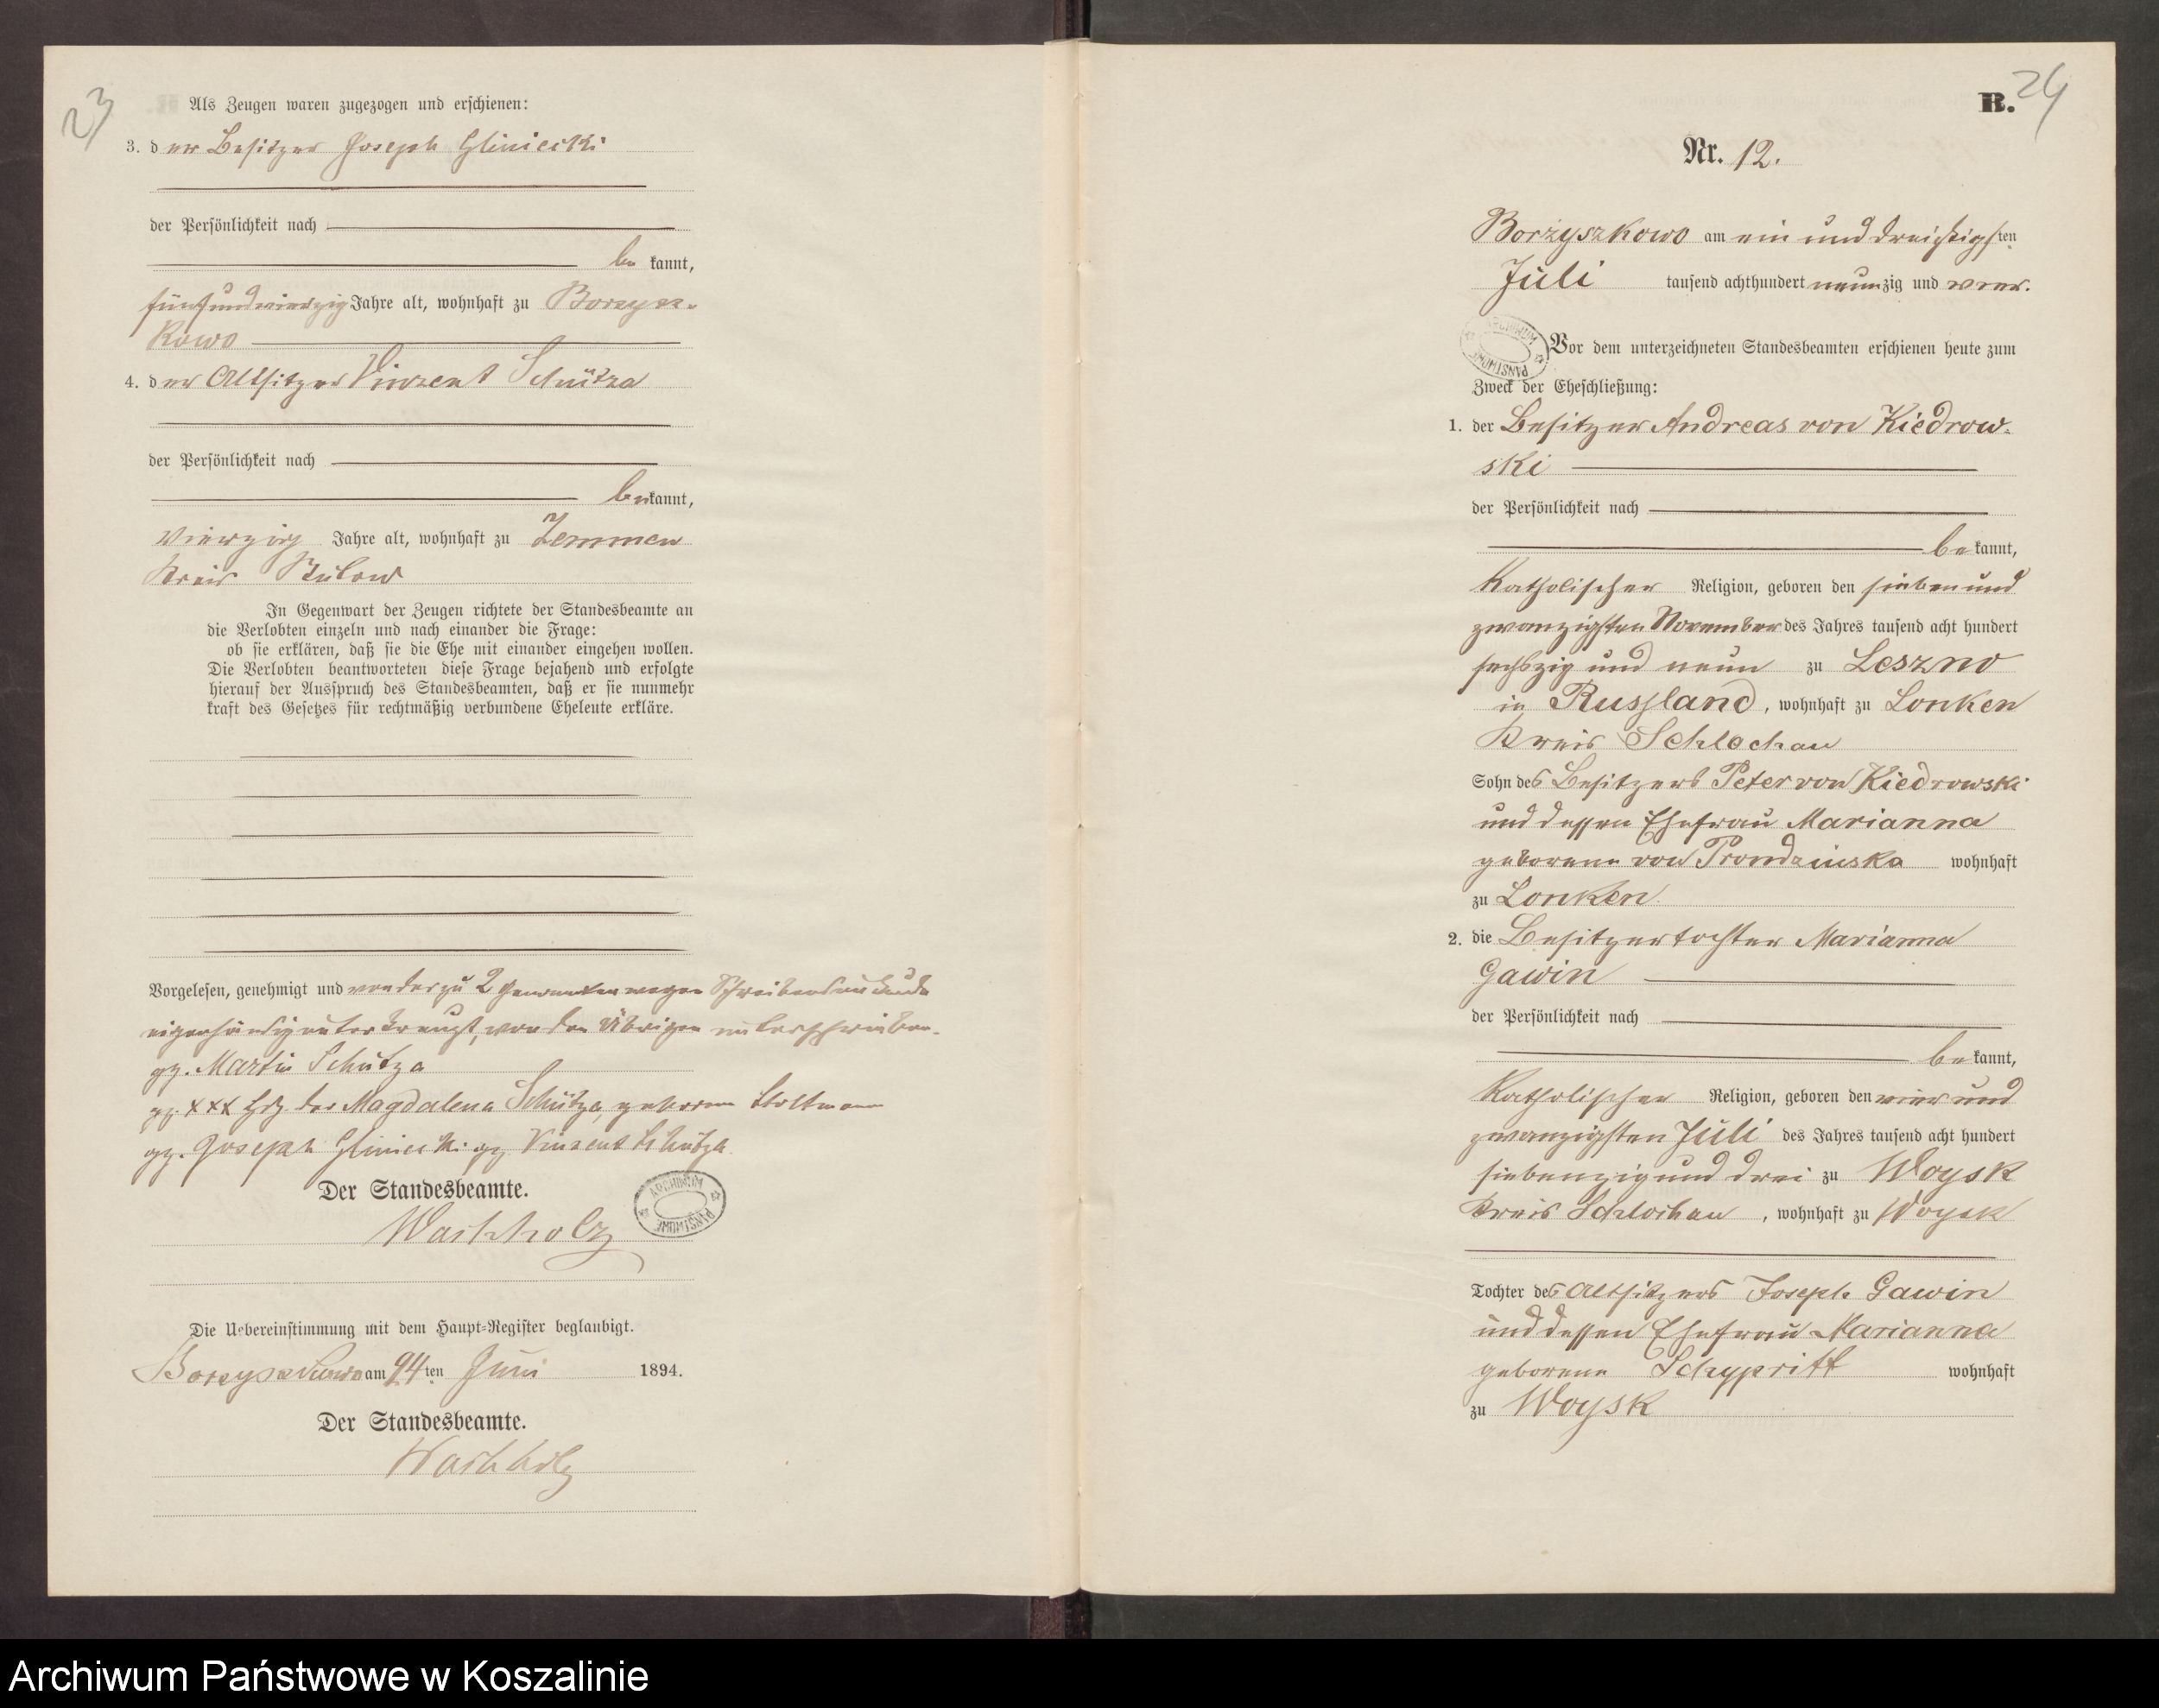 23
Als Zeugen waren zugezogen und erschienen:
3. der Besitzer Joseph Gliniecki
der Persönlichkeit nach
be kannt,
fünfundvierzig Jahre alt, wohnhaft zu Borzysz-
kowo
4. der Altsitzer Vinzent Schütza
der Persönlichkeit nach
bekannt,
vierzig Jahre alt, wohnhaft zu Zemmen
Kreis Bütow
In Gegenwart der Zeugen richtete der Standesbeamte an
die Verlobten einzeln und nach einander die Frage:
ob sie erklären, daß sie die Ehe mit einander eingehen wollen.
Die Verlobten beantworteten diese Frage bejahend und erfolgte
hierauf der Ausspruch des Standesbeamten, daß er sie nunmehr
kraft des Gesetzes für rechtmäßig verbundene Eheleute erkläre.
Vorgelesen, genehmigt und von der zu 2 Genannten wegen Schreibensunkunde
eigenhändig unterkreuzt, von den Übrigen unterschrieben.
gz. Martin Schütza
gz. XXX Hdz. der Magdalena Schütza, geborene Stoltmann
gz. Joseph Gliniecki gz Vinzent Schütza
Der Standesbeamte.
ARCHIWUM PAŃSTWOWE
Wachholz
Die Uebereinstimmung mit dem Haupt=Register beglaubigt.
Borzyszkowo am 24 ten Juni 1894.
Der Standesbeamte.
Wachholz
B. 24
Nr. 12.
Borzyszkowo am ein und dreißigsten
Juli tausend achthundert neunzig und vier.
ARCHIWUM PAŃSTWOWE
Vor dem unterzeichneten Standesbeamten erschienen heute zum
Zweck der Eheschließung:
1. der Besitzer Andreas von Kiedrow-
ski
der Persönlichkeit nach
be kannt,
katholischer Religion, geboren den sieben und
zwanzigsten November des Jahres tausend acht hundert
sechszig und neun zu Leszno
in Russland, wohnhaft zu Lonken
Kreis Schlochau
Sohn des Besitzers Peter von Kiedrowski
und dessen Ehefrau Marianna
geborene von Prondzinska wohnhaft
zu Lonken.
2. die Besitzertochter Marianna
Gawin
der Persönlichkeit nach
be kannt,
katholischer Religion, geboren den vier und
zwanzigsten Juli des Jahres tausend acht hundert
siebenzig und drei zu Woysk
Kreis Schlochau, wohnhaft zu Woysk
Tochter des Altsitzers Joseph Gawin
und dessen Ehefrau Marianna
geborene Schypritt wohnhaft
zu Woysk
Archiwum Państwowe w Koszalinie